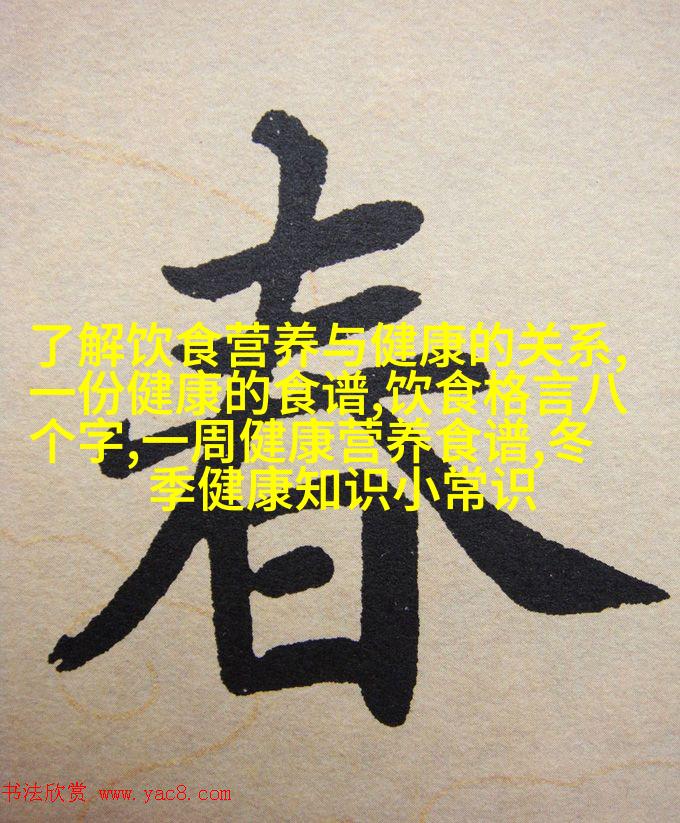 春
了解饮食营养与健康的关系,
一份健康的食谱,饮食格言八
个字,一周健康营养食谱,冬
季健康知识小常识
书法欣赏 www.yac8.com